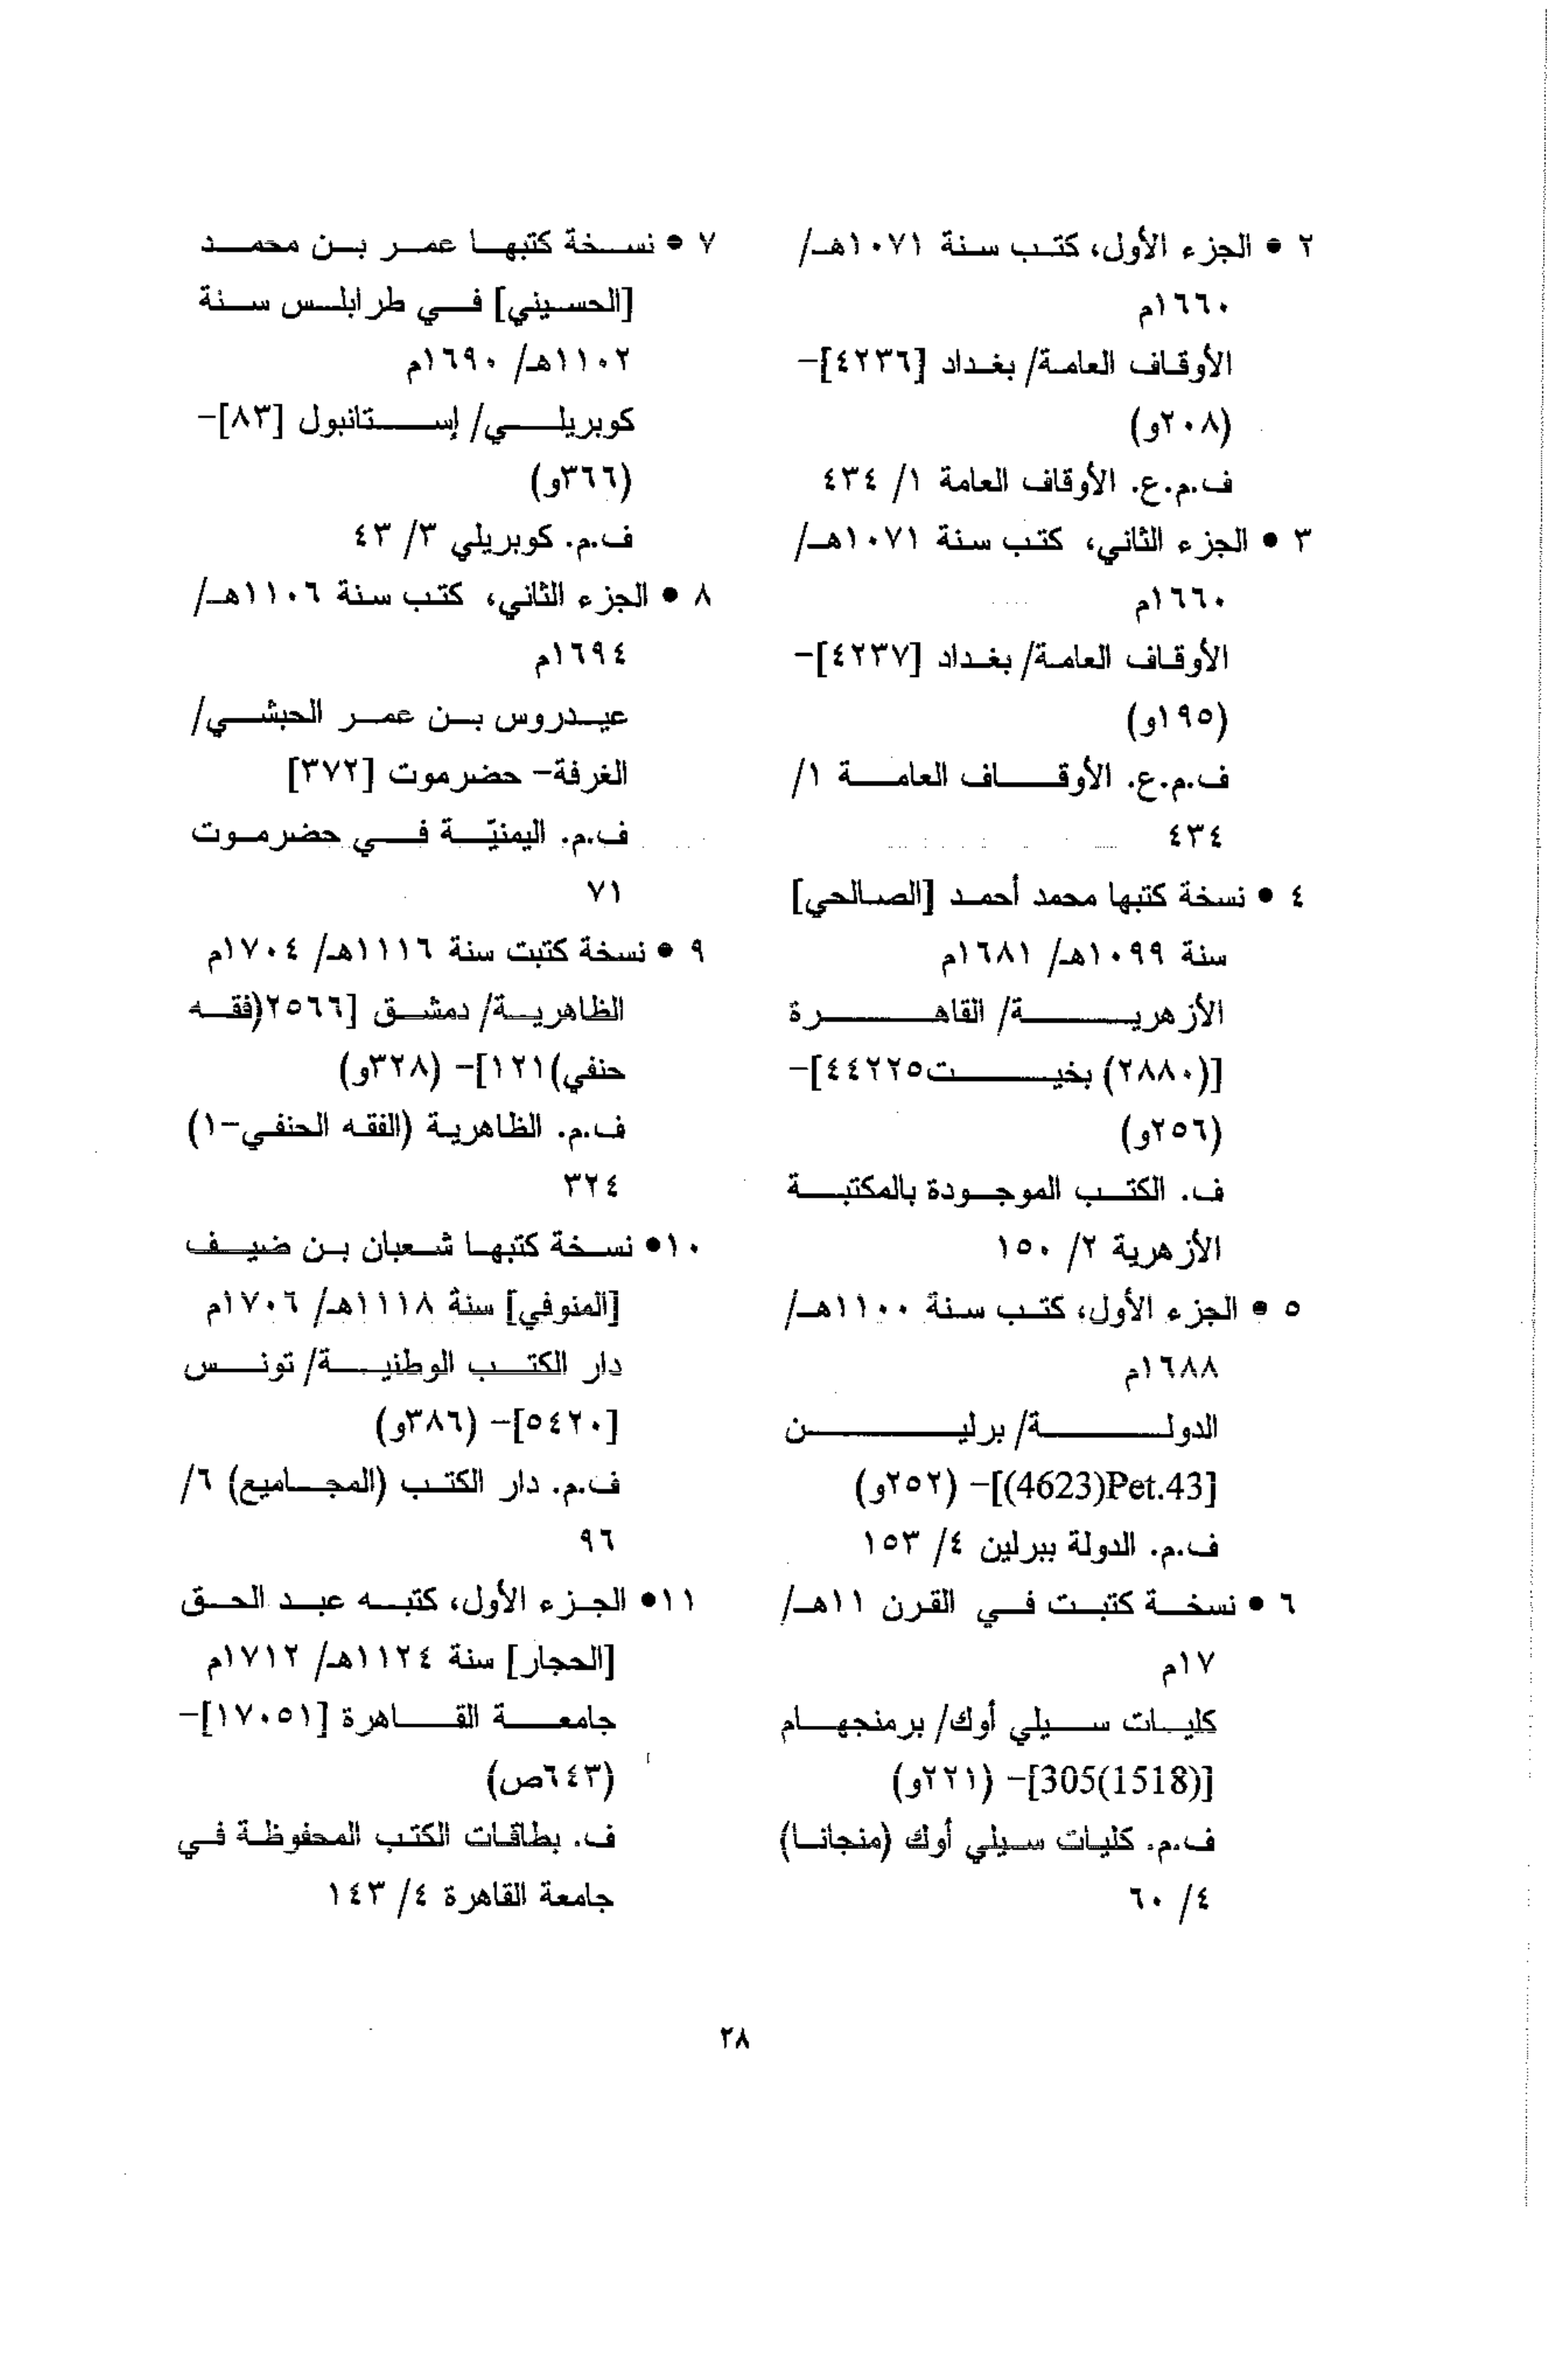 ٢ • الجزء الأول، كتب سنة ١٠٧١هـ/
١٦٦٠م
الأوقاف العامة/ بغداد [٤٢٣٦]-
(٢٠٨و)
ف.م.ع. الأوقاف العامة ١/ ٤٣٤
٣ • الجزء الثاني، كتب سنة ١٠٧١هـ/
١٦٦٠م
الأوقاف العامة/ بغداد [٤٢٣٧]-
(١٩٥و)
ف.م.ع. الأوقاف العامة ١/
٤٣٤
٤ • نسخة كتبها محمد أحمد [الصالحي]
سنة ١٠٩٩هـ/ ١٦٨١م
الأزهرية/ القاهرة
[(٢٨٨٠) بخيت٤٤٢٢٥]-
(٢٥٦و)
ف. الكتب الموجودة بالمكتبة
الأزهرية ٢/ ١٥٠
٥ • الجزء الأول، كتب سنة ١١٠٠هـ/
١٦٨٨م
الدولة/ برلين
[(4623)Pet.43]- (٢٥٢و)
ف.م. الدولة ببرلين ٤/ ١٥٣
٦ • نسخة كتبت في القرن ١١هـ/
١٧م
كليات سيلي أوك/ برمنجهام
[305(1518)]- (٢٢١و)
ف.م. كليات سيلي أوك (منجانا)
٤/ ٦٠
٧ • نسخة كتبها عمر بن محمد
[الحسيني] في طرابلس سنة
١١٠٢هـ/ ١٦٩٠م
كوبريلي/ إستانبول [٨٣]-
(٣٦٦و)
ف.م. كوبريلي ٣/ ٤٣
٨ • الجزء الثاني، كتب سنة ١١٠٦هـ/
١٦٩٤م
عيدروس بن عمر الحبشي/
الغرفة- حضرموت [٣٧٢]
ف.م. اليمنيّة في حضرموت
٧١
٩ • نسخة كتبت سنة ١١١٦هـ/ ١٧٠٤م
الظاهرية/ دمشق [٢٥٦٦(فقه
حنفي)١٢١]- (٣٢٨و)
ف.م. الظاهرية (الفقه الحنفي-١)
٣٢٤
١٠• نسخة كتبها شعبان بن ضيف
[المنوفي] سنة ١١١٨هـ/ ١٧٠٦م
دار الكتب الوطنية/ تونس
[٥٤٢٠]- (٣٨٦و)
ف.م. دار الكتب (المجاميع) ٦/
٩٦
١١• الجزء الأول، كتبه عبد الحق
[الحجار] سنة ١١٢٤هـ/ ١٧١٢م
جامعة القاهرة [١٧٠٥١]-
(٦٤٣ص)
ف. بطاقات الكتب المحفوظة في
جامعة القاهرة ٤/ ١٤٣
٢٨